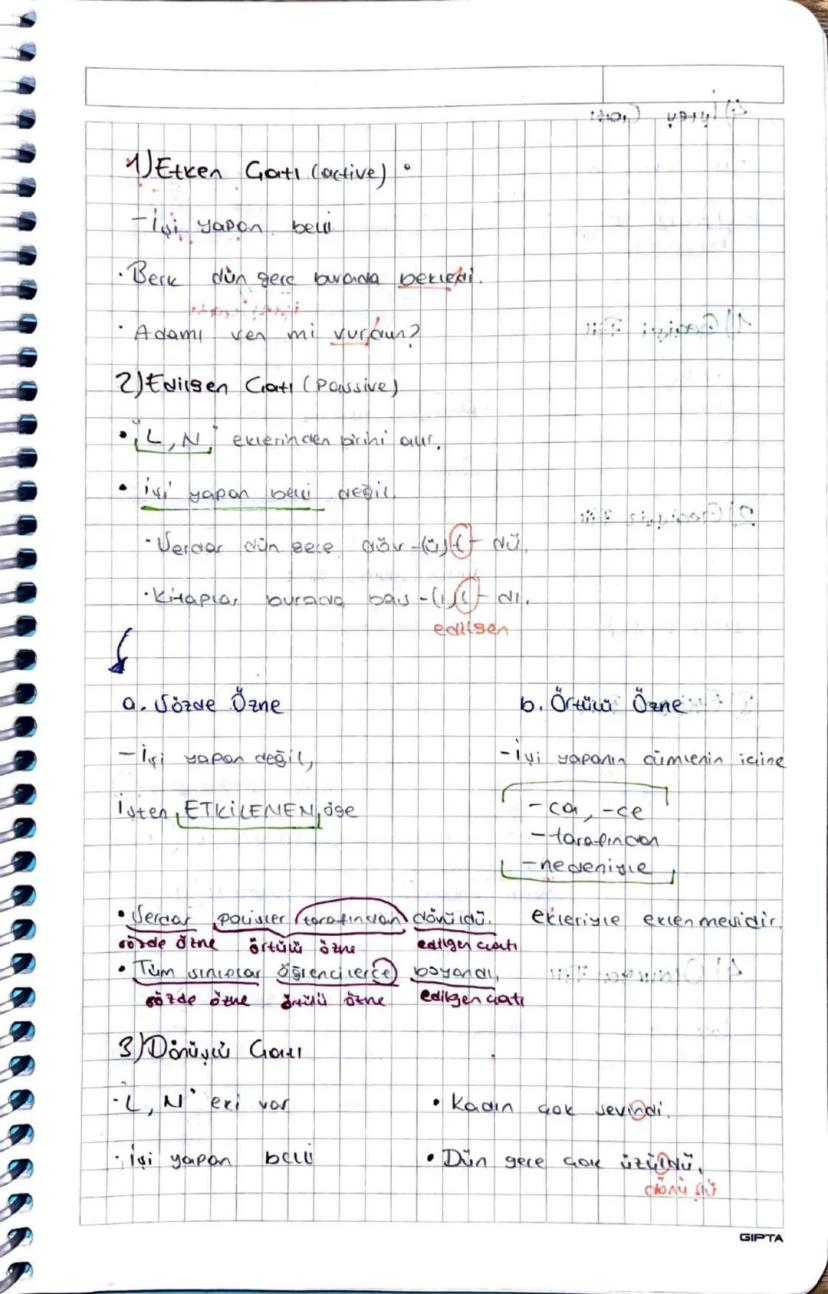 1) Etken Çatı (active)
- İşi yapan belli
· Berk dün gece burada bekledi.
· Adamı sen mi vurdun?
2) Edilgen Çatı (Passive)
• "L, N" eklerinden birini alır.
• İşi yapan belli değil.
· Serdar dün gece döv-(ü)l-dü.
· Kitaplar burada bas-(ı)l-dı.
edilgen
a. Sözde Özne
b. Örtülü Özne
- İşi yapan değil,
- İşi yapanın cümlenin içine
işten ETKİLENEN öge
- ca, -ce
- tarafından
- nedeniyle
• Serdar polisler tarafından dövüldü.
ekleriyle eklenmesidir.
sözde özne örtülü özne edilgen çatı
• Tüm sınıflar öğrencilerce boyandı.
sözde özne örtülü özne edilgen çatı
3) Dönüşlü Çatı
· "L, N" eki var
• Kadın çok sevindi.
· İşi yapan belli
• Dün gece çok üzüldü.
dönüşlü
GIPTA